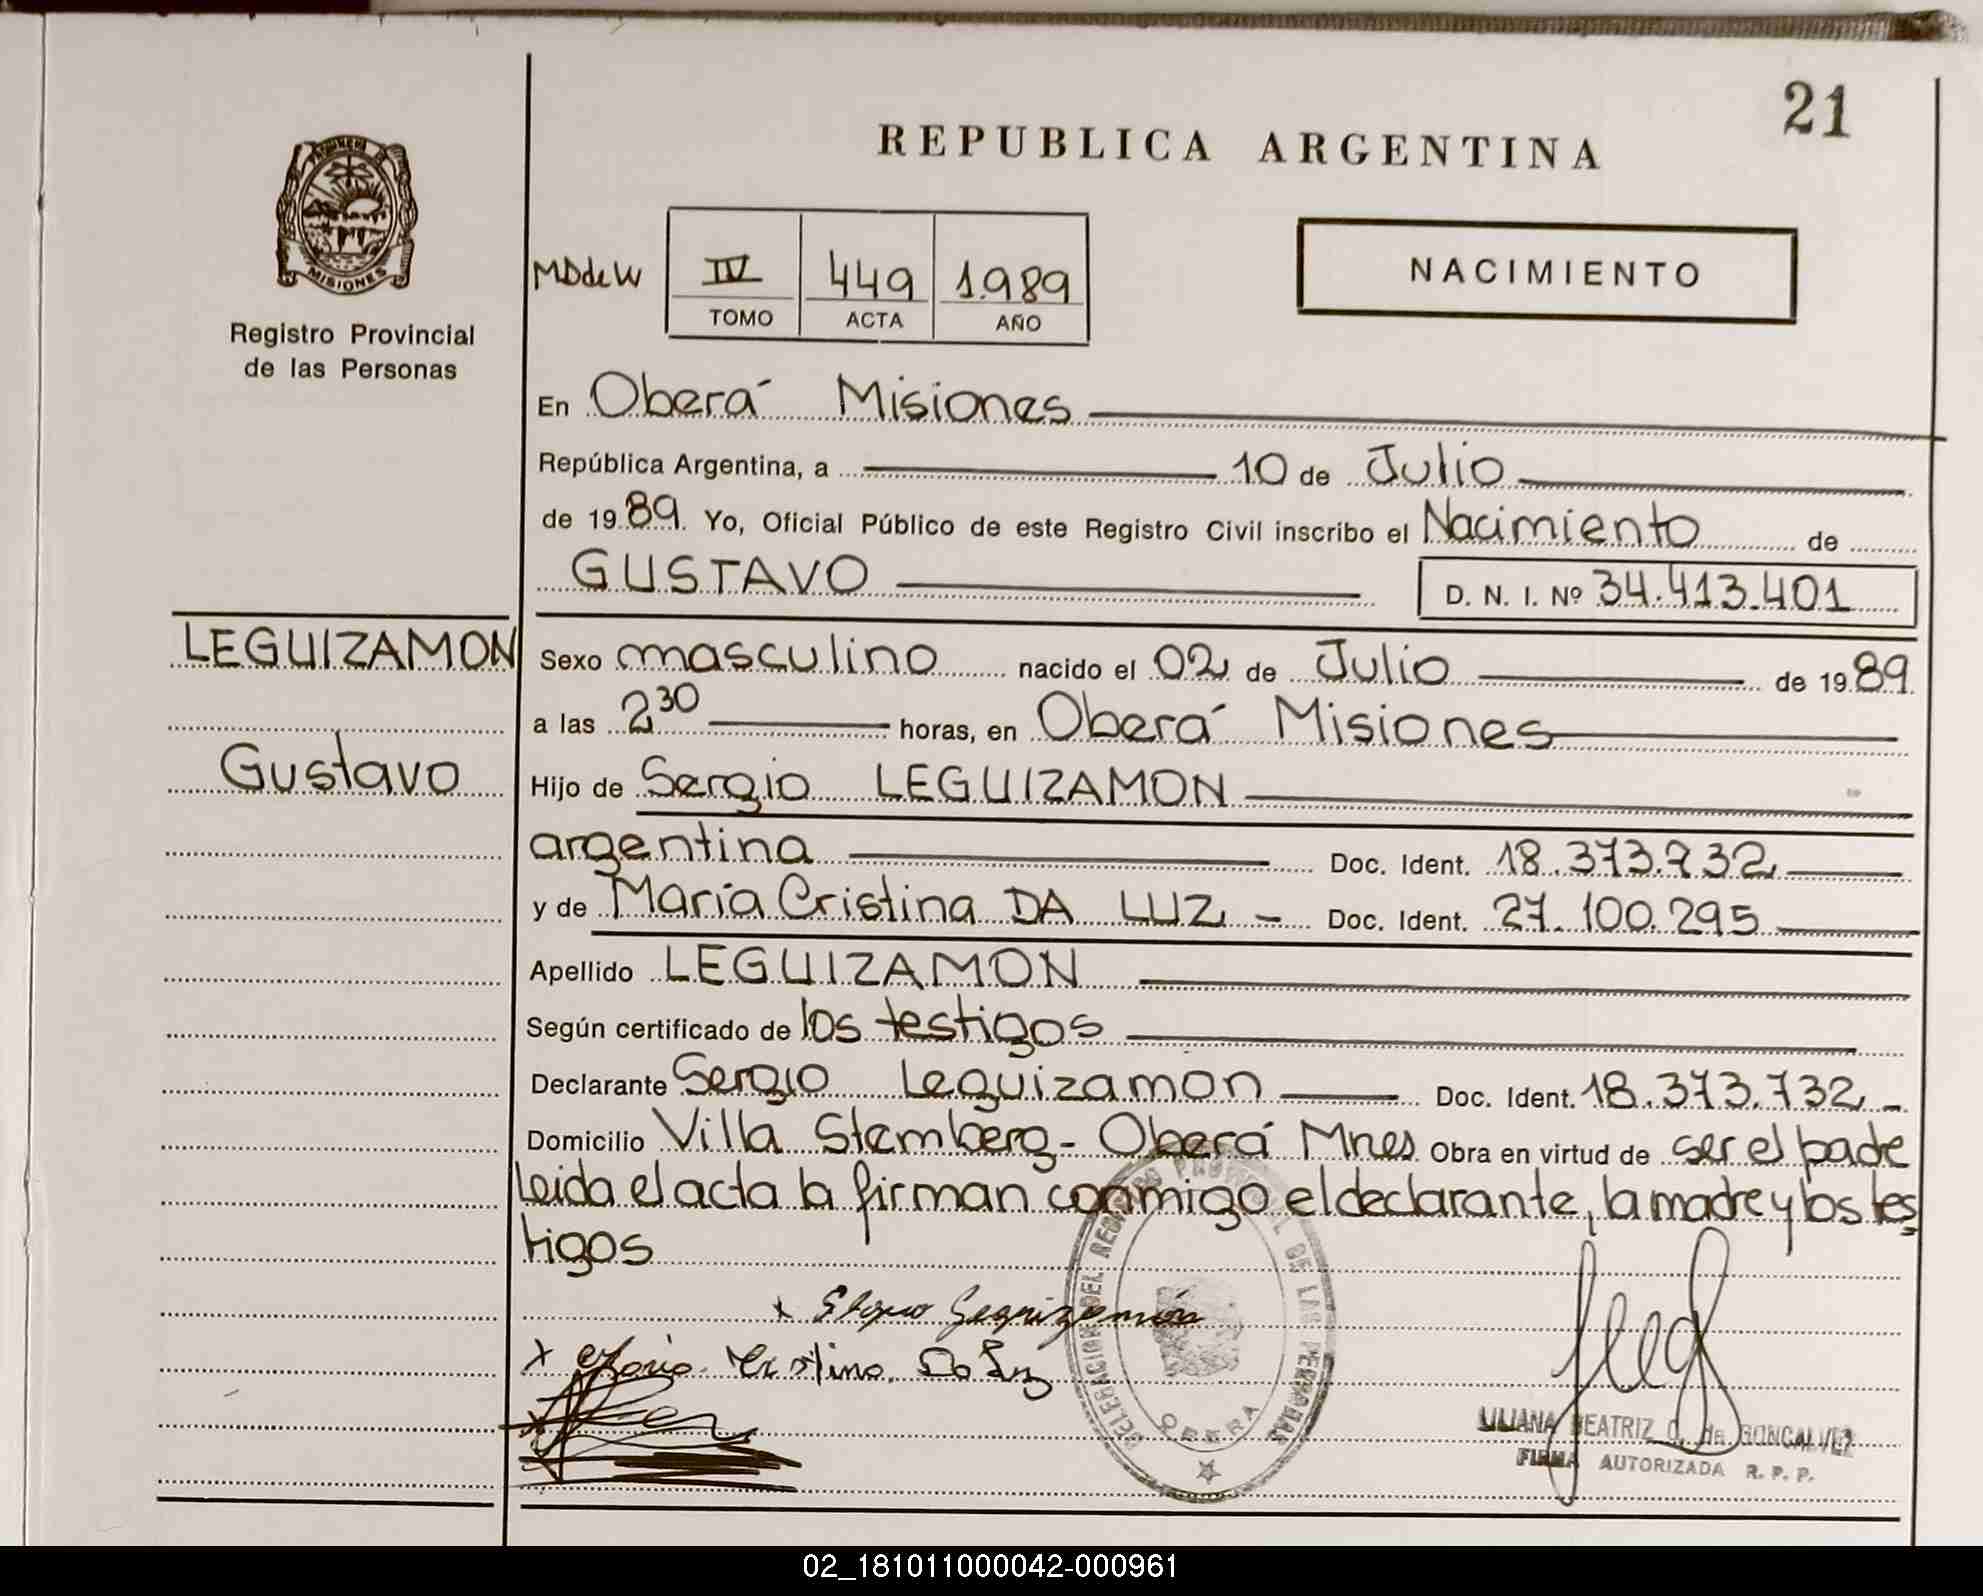 21
REPUBLICA ARGENTINA
MISIONES
Registro Provincial
de las Personas
MDdeW
IV 449 1.989
TOMO ACTA AÑO
NACIMIENTO
En Oberá Misiones
República Argentina, a 10 de Julio
de 19 89. Yo, Oficial Público de este Registro Civil inscribo el Nacimiento de
GUSTAVO D. N. I. Nº 34.413.401
LEGUIZAMON
Gustavo
Sexo masculino nacido el 02 de Julio de 19 89
a las 2,30 horas, en Oberá Misiones
Hijo de Sergio LEGUIZAMON
argentina Doc. Ident. 18.373.732
y de María Cristina DA LUZ - Doc. Ident. 27.100.295
Apellido LEGUIZAMON
Según certificado de los testigos
Declarante Sergio Leguizamon Doc. Ident. 18.373.732 -
Domicilio Villa Stemberg - Oberá Mnes Obra en virtud de ser el padre
leida el acta la firman conmigo el declarante, la madre y los tes
tigos
x Leguizamón
x María Cristina Da Luz
DELEGACION DEL REGISTRO PROVINCIAL DE LAS PERSONAS
OBERA
LILIANA BEATRIZ O. de GONCALVEZ
FIRMA AUTORIZADA R. P. P.
02_181011000042-000961